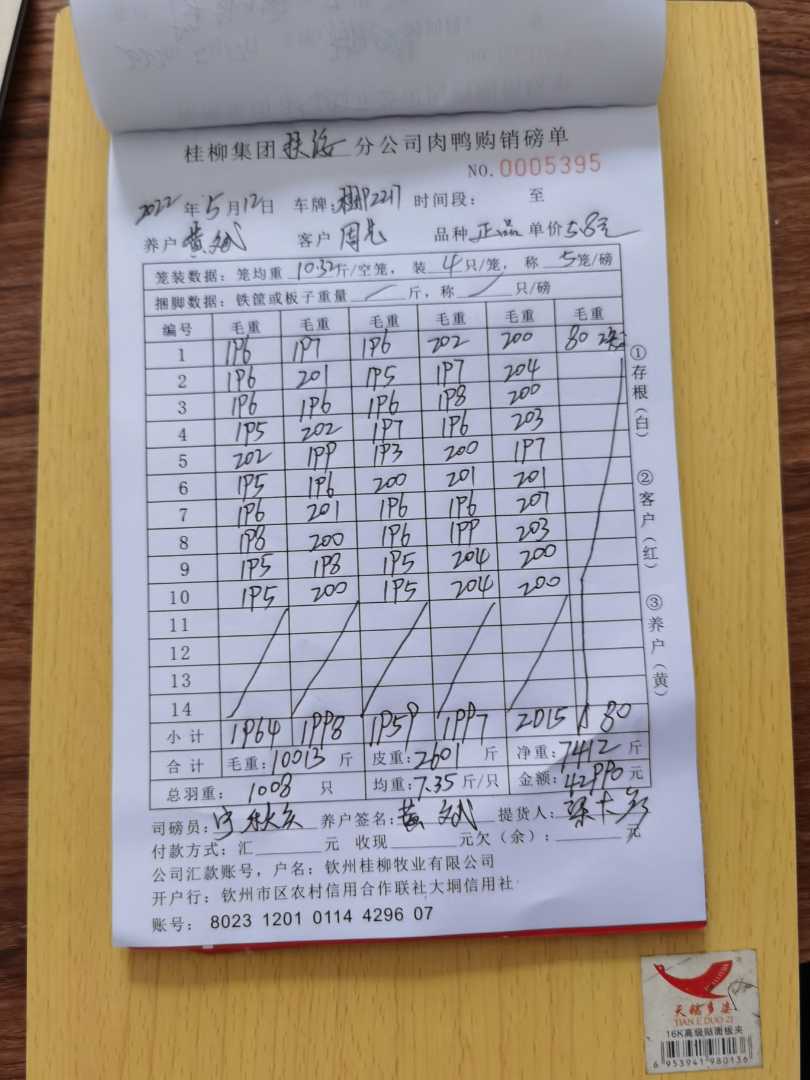 桂柳集团扶海分公司肉鸭购销磅单
NO.0005395
2022年5月12日 车牌: 时间段: 至
养户黄斌 客户周总 品种正品 单价5.8元
笼装数据:笼均重10.32斤/空笼,装4只/笼,称5笼/磅
捆脚数据:铁筐或板子重量/斤,称/只/磅
编号 毛重 毛重 毛重 毛重 毛重 毛重
1 196 197 196 202 200 80 2笼
2 196 201 195 197 204
3 196 196 196 198 200
4 195 202 197 196 203
5 202 199 193 200 197
6 195 196 200 201 201
7 196 201 196 196 207
8 198 200 196 199 203
9 195 198 195 204 200
10 195 200 195 204 200
11
12
13
14
小计 1964 1998 1959 1997 2015 80
合计 毛重:10013斤 皮重:2601斤 净重:7412斤
总羽重:1008只 均重:7.35斤/只 金额:42990元
司磅员: 养户签名:黄斌 提货人:
付款方式:汇 元 收现 元欠(余): 元
公司汇款账号,户名:钦州桂柳牧业有限公司
开户行:钦州市区农村信用合作联社大垌信用社
账号: 8023 1201 0114 4296 07
①存根(白) ②客户(红) ③养户(黄)
天鹅多姿
TIAN E DUO ZI
16K高级贴面板夹
6 953941 980136